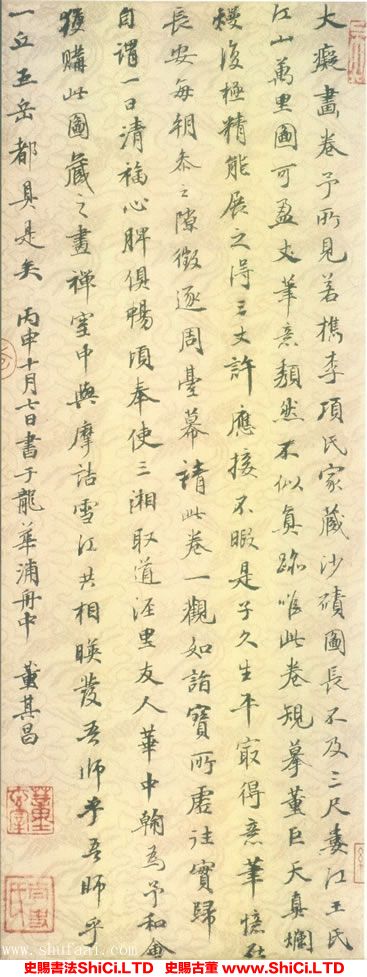 大癡畫卷予所見若檇李項氏家藏沙磧圖長不及三尺婁江王氏
江山萬里圖可盈丈筆意頹然不似真跡唯此卷規摹董巨天真爛
熳復極精能展之得三丈許應接不暇是子久生平冣得意筆憶在
長安每朝參之隙徵逐周臺幕請此卷一觀如詣寶所虛往實歸
自謂一日清福心脾俱暢頃奉使三湘取道涇里友人華中翰為予和會
獲購此圖藏之畫禪室中與摩詰雪江共相暎發吾師乎吾師乎
一丘五岳都具是矣丙申十月七日書于龍華浦舟中 董其昌
史賜書法ShiCi.LTD 史賜古董 @ShiCi.LTD